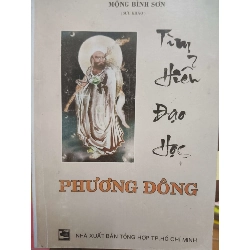 MỘNG BÌNH SƠN
Tìm
Hiểu
Đạo
Học
PHƯƠNG ĐÔNG
NHÀ XUẤT BẢN TỔNG HỢP TP. HỒ CHÍ MINH